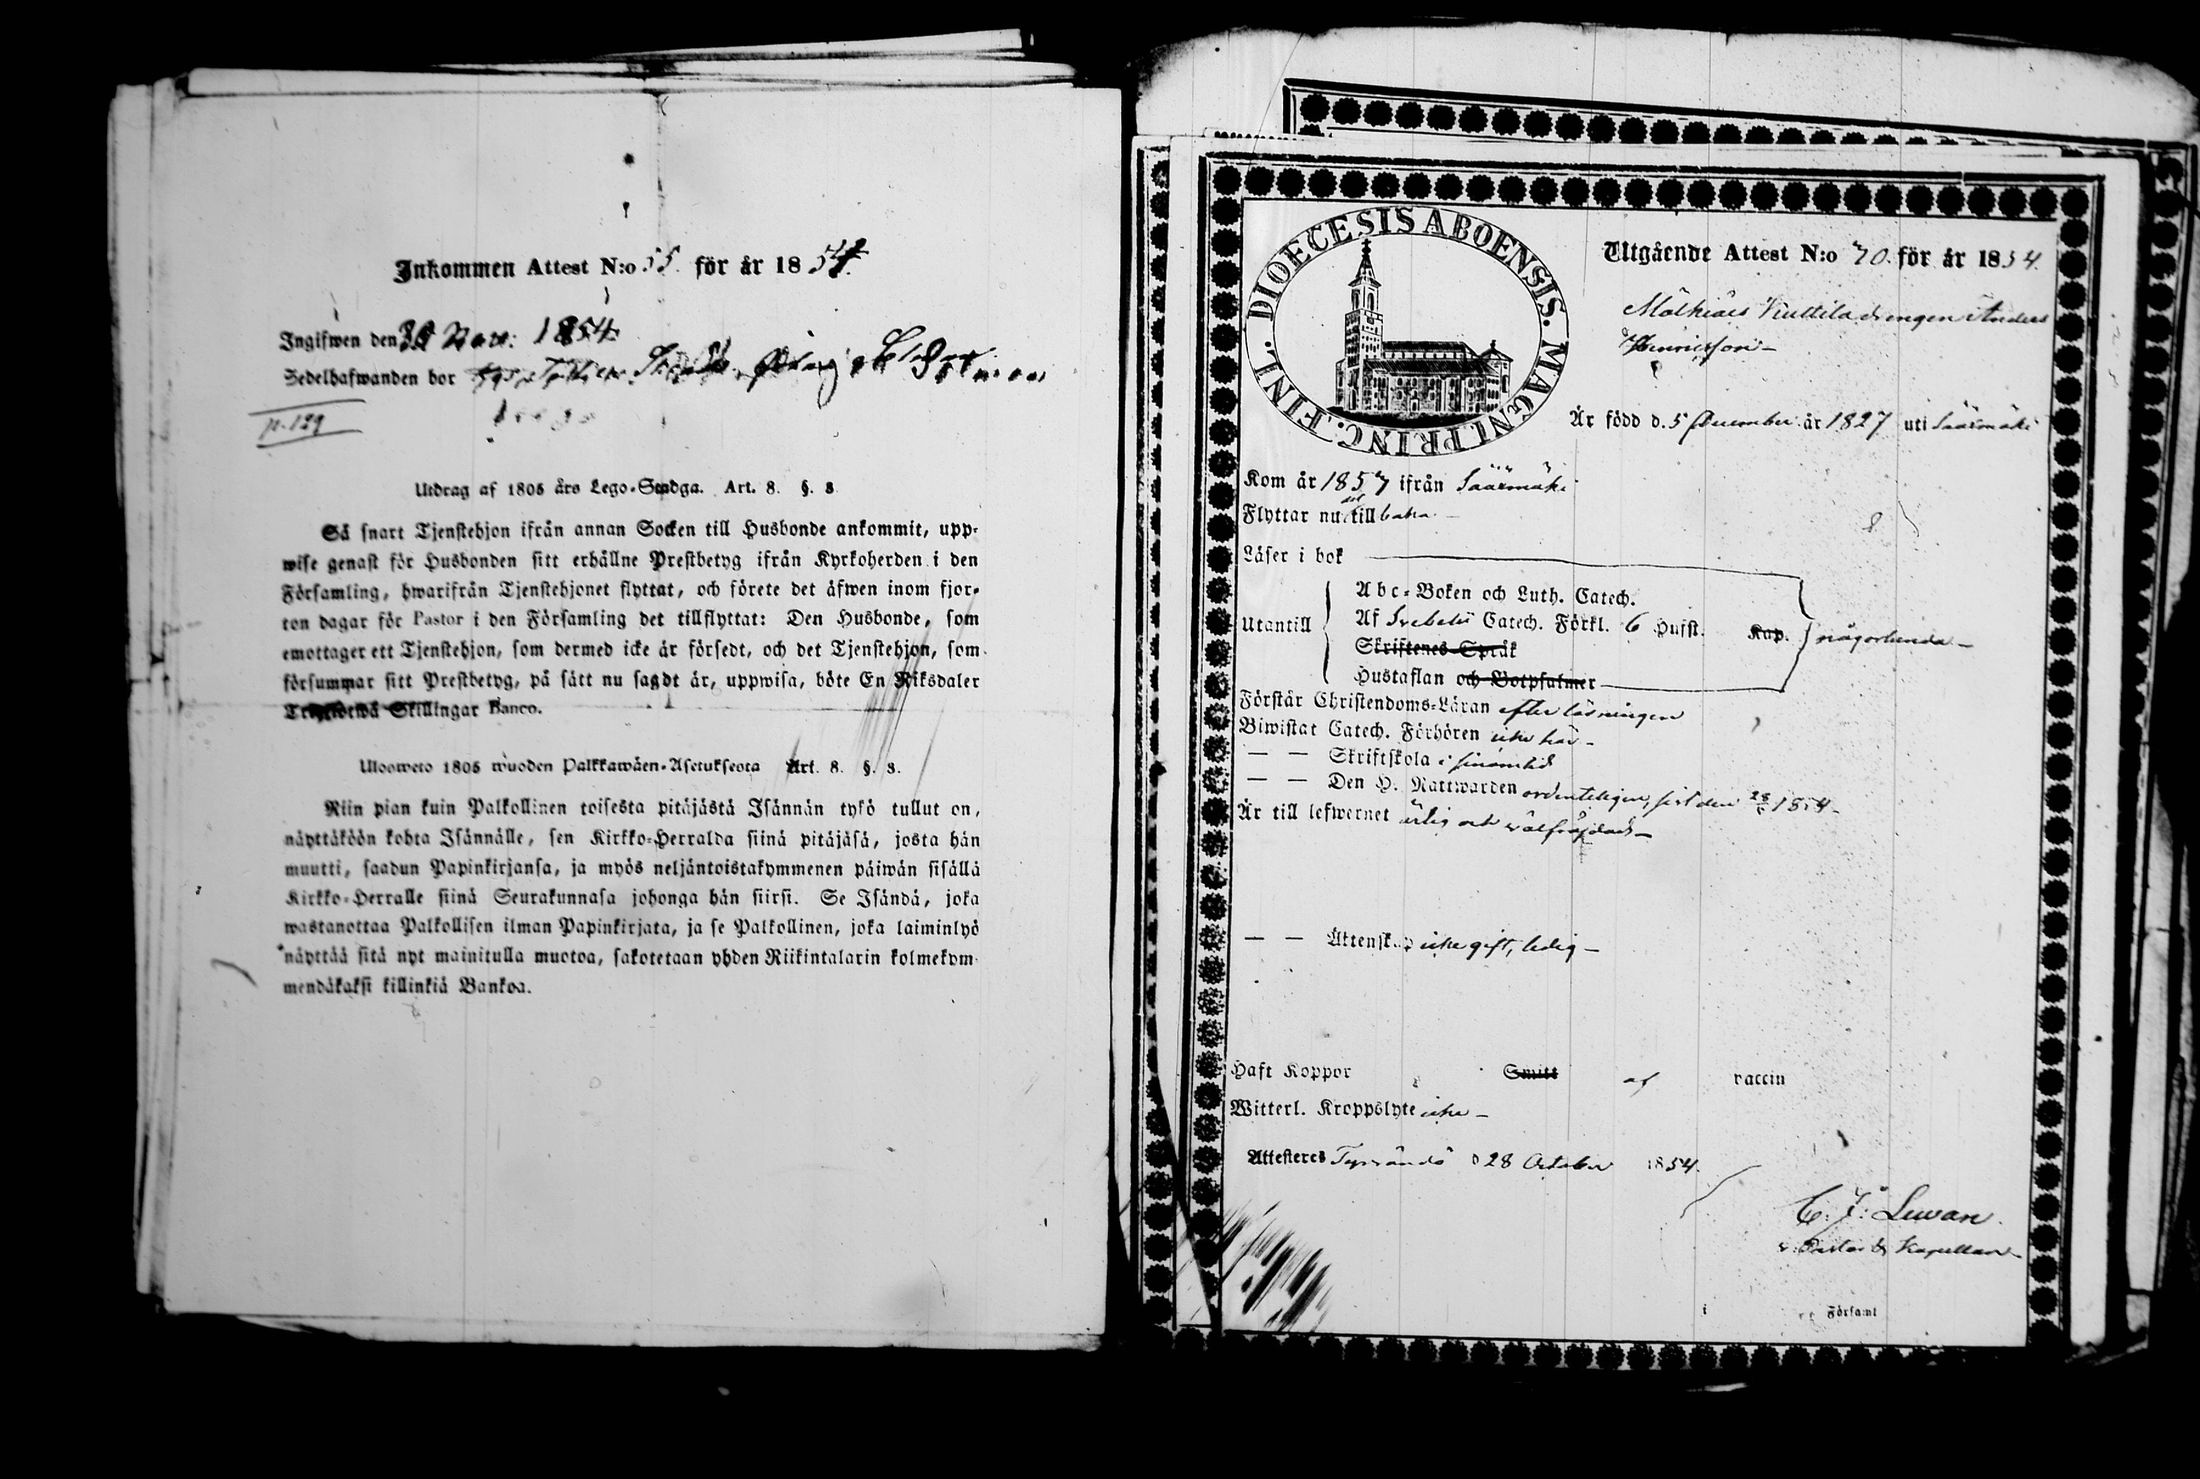 Inkommen Attest N:o 55. för år 1854.
Ingifwen den 30 Nov: 1854
Sedelhafwanden bor
p. 129
Utdrag af 1805 års Lego-Stadga. Art. 8. §. 8
Så snart Tjenstehjon ifrån annan Socken till Husbonde ankommit, upp-
wise genast för Husbonden sitt erhållne Prestbetyg ifrån Kyrkoherden i den
Församling, hwarifrån Tjenstehjonet flyttat, och förete det äfwen inom fjor-
ton dagar för Pastor i den Församling det tillflyttat: Den Husbonde, som
emottager ett Tjenstehjon, som dermed icke är försedt, och det Tjenstehjon, som
försummar sitt Prestbetyg, på sätt nu sagdt är, uppwisa, böte En Riksdaler
Trettiotwå Skillingar Banco.
Ulosweto 1805 wuoden Palkkawäen-Asetuksesta Art. 8. §. 8.
Niin pian kuin Palkollinen toisesta pitäjästä Isännän tykö tullut on,
näyttäköön kohta Isännälle, sen Kirkko-Herralda siinä pitäjäsä, josta hän
muutti, saadun Papinkirjansa, ja myös neljäntoistakymmenen päiwän sisällä
Kirkko-Herralle siinä Seurakunnasa johonga hän siirsi. Se Isändä, joka
wastanottaa Palkollisen ilman Papinkirjata, ja se Palkollinen, joka laiminlyö
näyttää sitä nyt mainitulla muotoa, sakotetaan yhden Riikintalarin kolmekym-
mendäkaksi killinkiä Bankoa.
DIOECESIS ABOENSIS. MAGNI PRINC. FINL.
Utgående Attest N:o 70. för år 1854.
Mälkiäis Kuttila drengen Anders
Henricsson
Är född d. 5 December år 1827 uti Sääxmäki
Kom år 1857 ifrån Sääxmäki
Flyttar nu dit tillbaka
Läser i bok
Abc-Boken och Luth. Catech.
Utantill Af Svebelii Catech. Förkl. 6 Hufst. Kap. någorlunda
Skriftenes Språk
Hustaflan och Botpsalmer
Förstår Christendoms-Läran efter läsningen
Biwistat Catech. Förhören icke här
— — Skriftskola i sinom tid
— — Den H. Nattwarden ordenteligen, sist den 1854
Är till lefwernet ärlig och wälfräjdad
— — Äktenskap icke gift, ledig
Haft Koppor Smitt af vaccin
Witterl. Kroppslyte icke
Attesteres Tyrvändö d 28 October 1854.
C. J. Lewan.
v. Pastor & Kapellan
i Församl